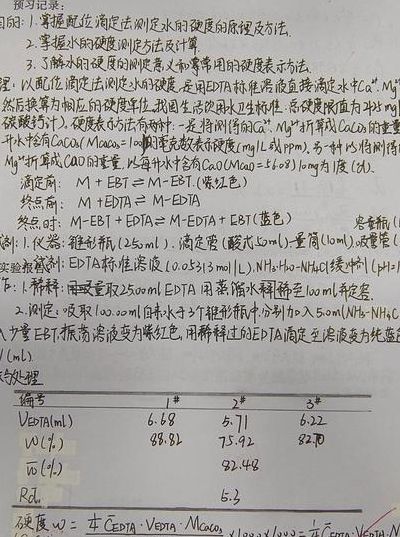 预习记录:
目的: 1.掌握配位滴定法测定水的硬度的原理及方法.
2.掌握水的硬度测定方法及计算.
3.了解水的硬度的测定意义和常用的硬度表示方法.
理: 以配位滴定法测定水的硬度,是用EDTA标准溶液直接滴定水中Ca²⁺、Mg²⁺
然后换算为相应的硬度单位.我国生活饮用水卫生标准,总硬度限值为
碳酸钙计).硬度表示方法有两种:一是将测得的Ca²⁺、Mg²⁺折算成CaCO₃的重量
升水中含有CaCO₃(MCaCO₃=100)的毫克数表示硬度(mg/L或ppm),另一种以将测得
Mg²⁺折算成CaO的重量,以每升水中含有CaO(MCaO=56.08)10mg为1度(d).
滴定前: M+EBT⇌M-EBT.(紫红色)
终点前: M+EDTA⇌M-EDTA
终点时: M-EBT+EDTA⇌M-EDTA+EBT(蓝色)
容量瓶(
试剂: 1.仪器:锥形瓶(250ml).滴定管(酸式50ml)量筒(10ml).吸量管(
实验报 试剂:EDTA标准溶液(0.05313mol/L).NH₃·H₂O-NH₄Cl缓冲剂(pH=1
1.稀释: 量取25.00ml EDTA用蒸馏水稀释至100ml并定容.
2.测定:吸取100.00ml自来水于3个锥形瓶中,分别加入5.0ml(NH₃-NH₄C
入少量EBT.振荡溶液变为紫红色,用稀释过的EDTA滴定至溶液变为纯蓝色
V(ml)
与处理
编号 1# 2# 3#
VEDTA(ml) 6.68 5.71 6.22
W(%) 88.82 75.92 82.70
W̄(%) 82.48
Rd̄. 5.3
硬度W= ¼C̄EDTA·VEDTA·MCaCO₃ ×1000×1000= ¼C̄EDTA·VEDTA·M